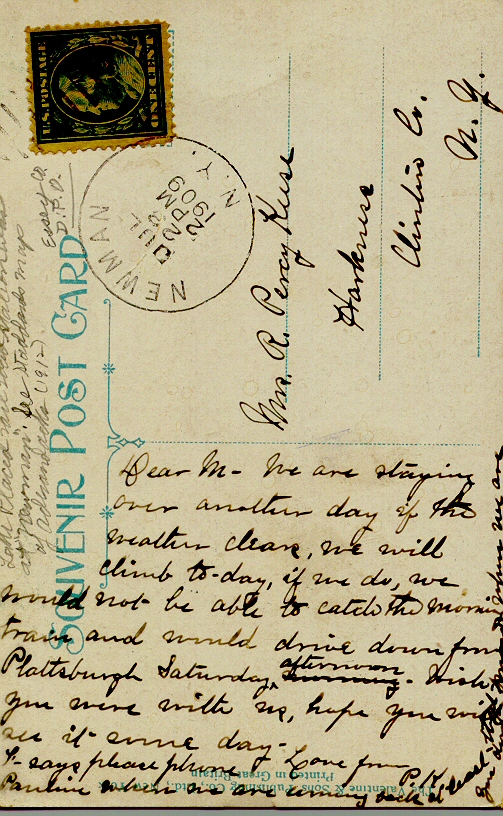 U.S. POSTAGE
ONE CENT
NEWMAN
N.Y.
JUL
23
2 PM
1909
SOUVENIR POST CARD
Essex Co.
D.P.O.
Lake Placid
at "Newman". See Stoddard's map
of Adirondacks (1912).
Mrs. R. Percy Keese
Harkness
Clinton Co.
N.Y.
Dear M- We are staying
over another day if the
weather clears, we will
climb to-day, if we do, we
would not be able to catch the morning
train and would drive down from
Plattsburgh Saturday afternoon morning. Wish
you were with us, hope you will
see it some day-
Love from
P. K.
says please phone
Pauline when we are coming back at least
The Valentine & Sons Publishing Co., Ltd. New York
Printed in Great Britain